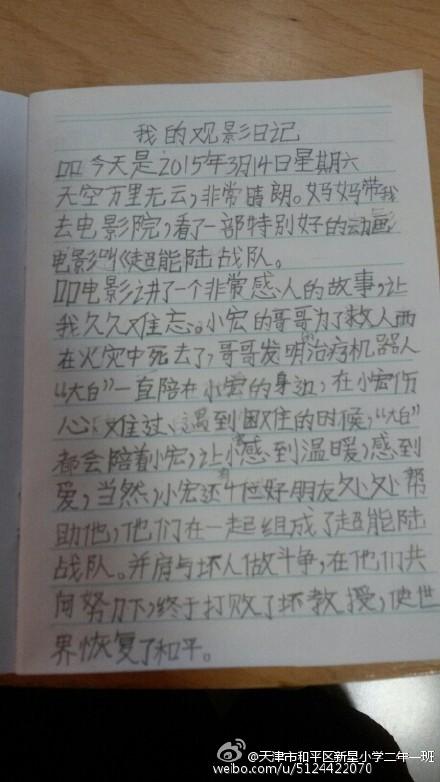 我的观影日记
今天是2015年3月14日星期六
天空万里无云，非常晴朗。妈妈带我
去电影院，看了一部特别好的动画
电影叫《超能陆战队。
电影讲了一个非常感人的故事，让
我久久难忘。小宏的哥哥为了救人而
在火灾中死去了，哥哥发明的治疗机器人
“大白”一直陪在小宏的身边，在小宏伤
心、难过、遇到困难的时候，“大白”
都会陪着小宏，让小宏感到温暖，感到
爱，当然，小宏还有4位好朋友处处帮
助他，他们在一起组成了超能陆
战队。并肩与坏人做斗争，在他们共
同努力下，终于打败了坏教授，使世
界恢复了和平。
@天津市和平区新星小学二年一班
weibo.com/u/5124422070